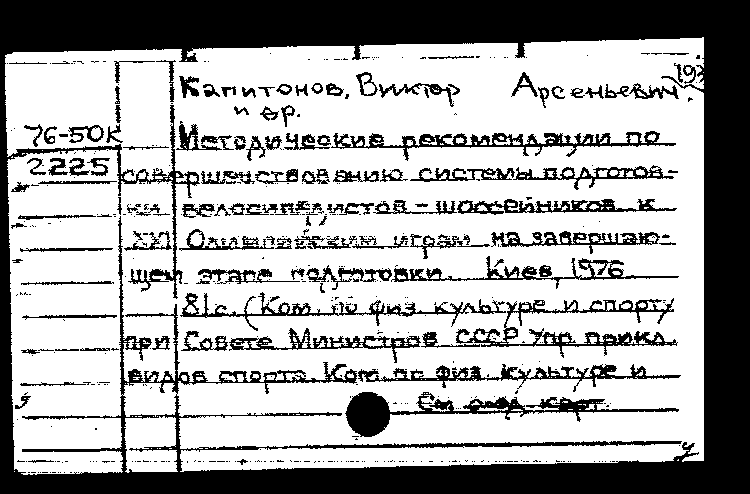 Капитонов, Виктор Арсеньевич. 193
и др.
76-50К Методические рекомендации по
2225 совершенствованию системы подготов-
ки велосипедистов - шоссейников к
XXI Олимпийским играм на завершаю-
щем этапе подготовки. Киев, 1976
81с. (Ком. по физ. культуре и спорту
при Совете Министров СССР Упр. прикл.
видов спорта. Ком. по физ. культуре и
См. след. карт.